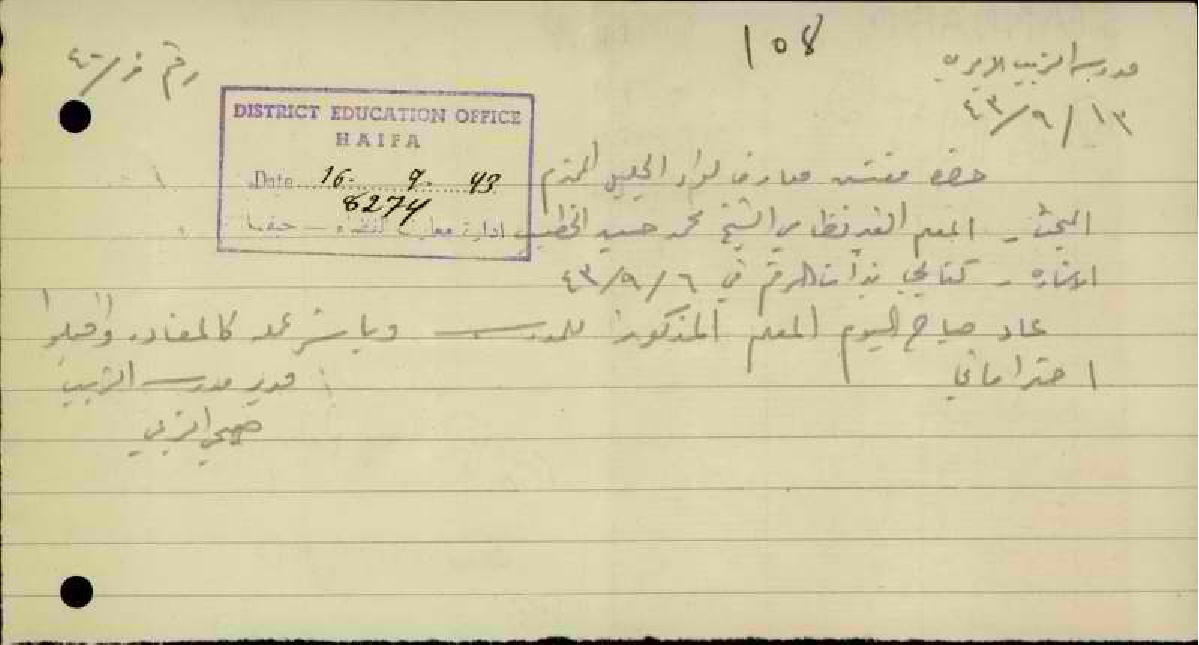 108
مدرسة الزيب الاميرية
١٣/٩/٤٣
رقم ز/٤٠
DISTRICT EDUCATION OFFICE
HAIFA
Date 16. 9. 43
8274
ادارة معارف لواء حيفا
حضرة مفتش معارف لواء الجليل المحترم
البحث - المعلم الغير نظامي الشيخ محمد حسين الخطيب
الاشارة - كتابي بذات الرقم في ٦/٩/٤٣
عاد صباح اليوم المعلم المذكور للمدرسة وباشر عمله كالمعتاد. واقبلوا
احتراماتي
مدير مدرسة الزيب